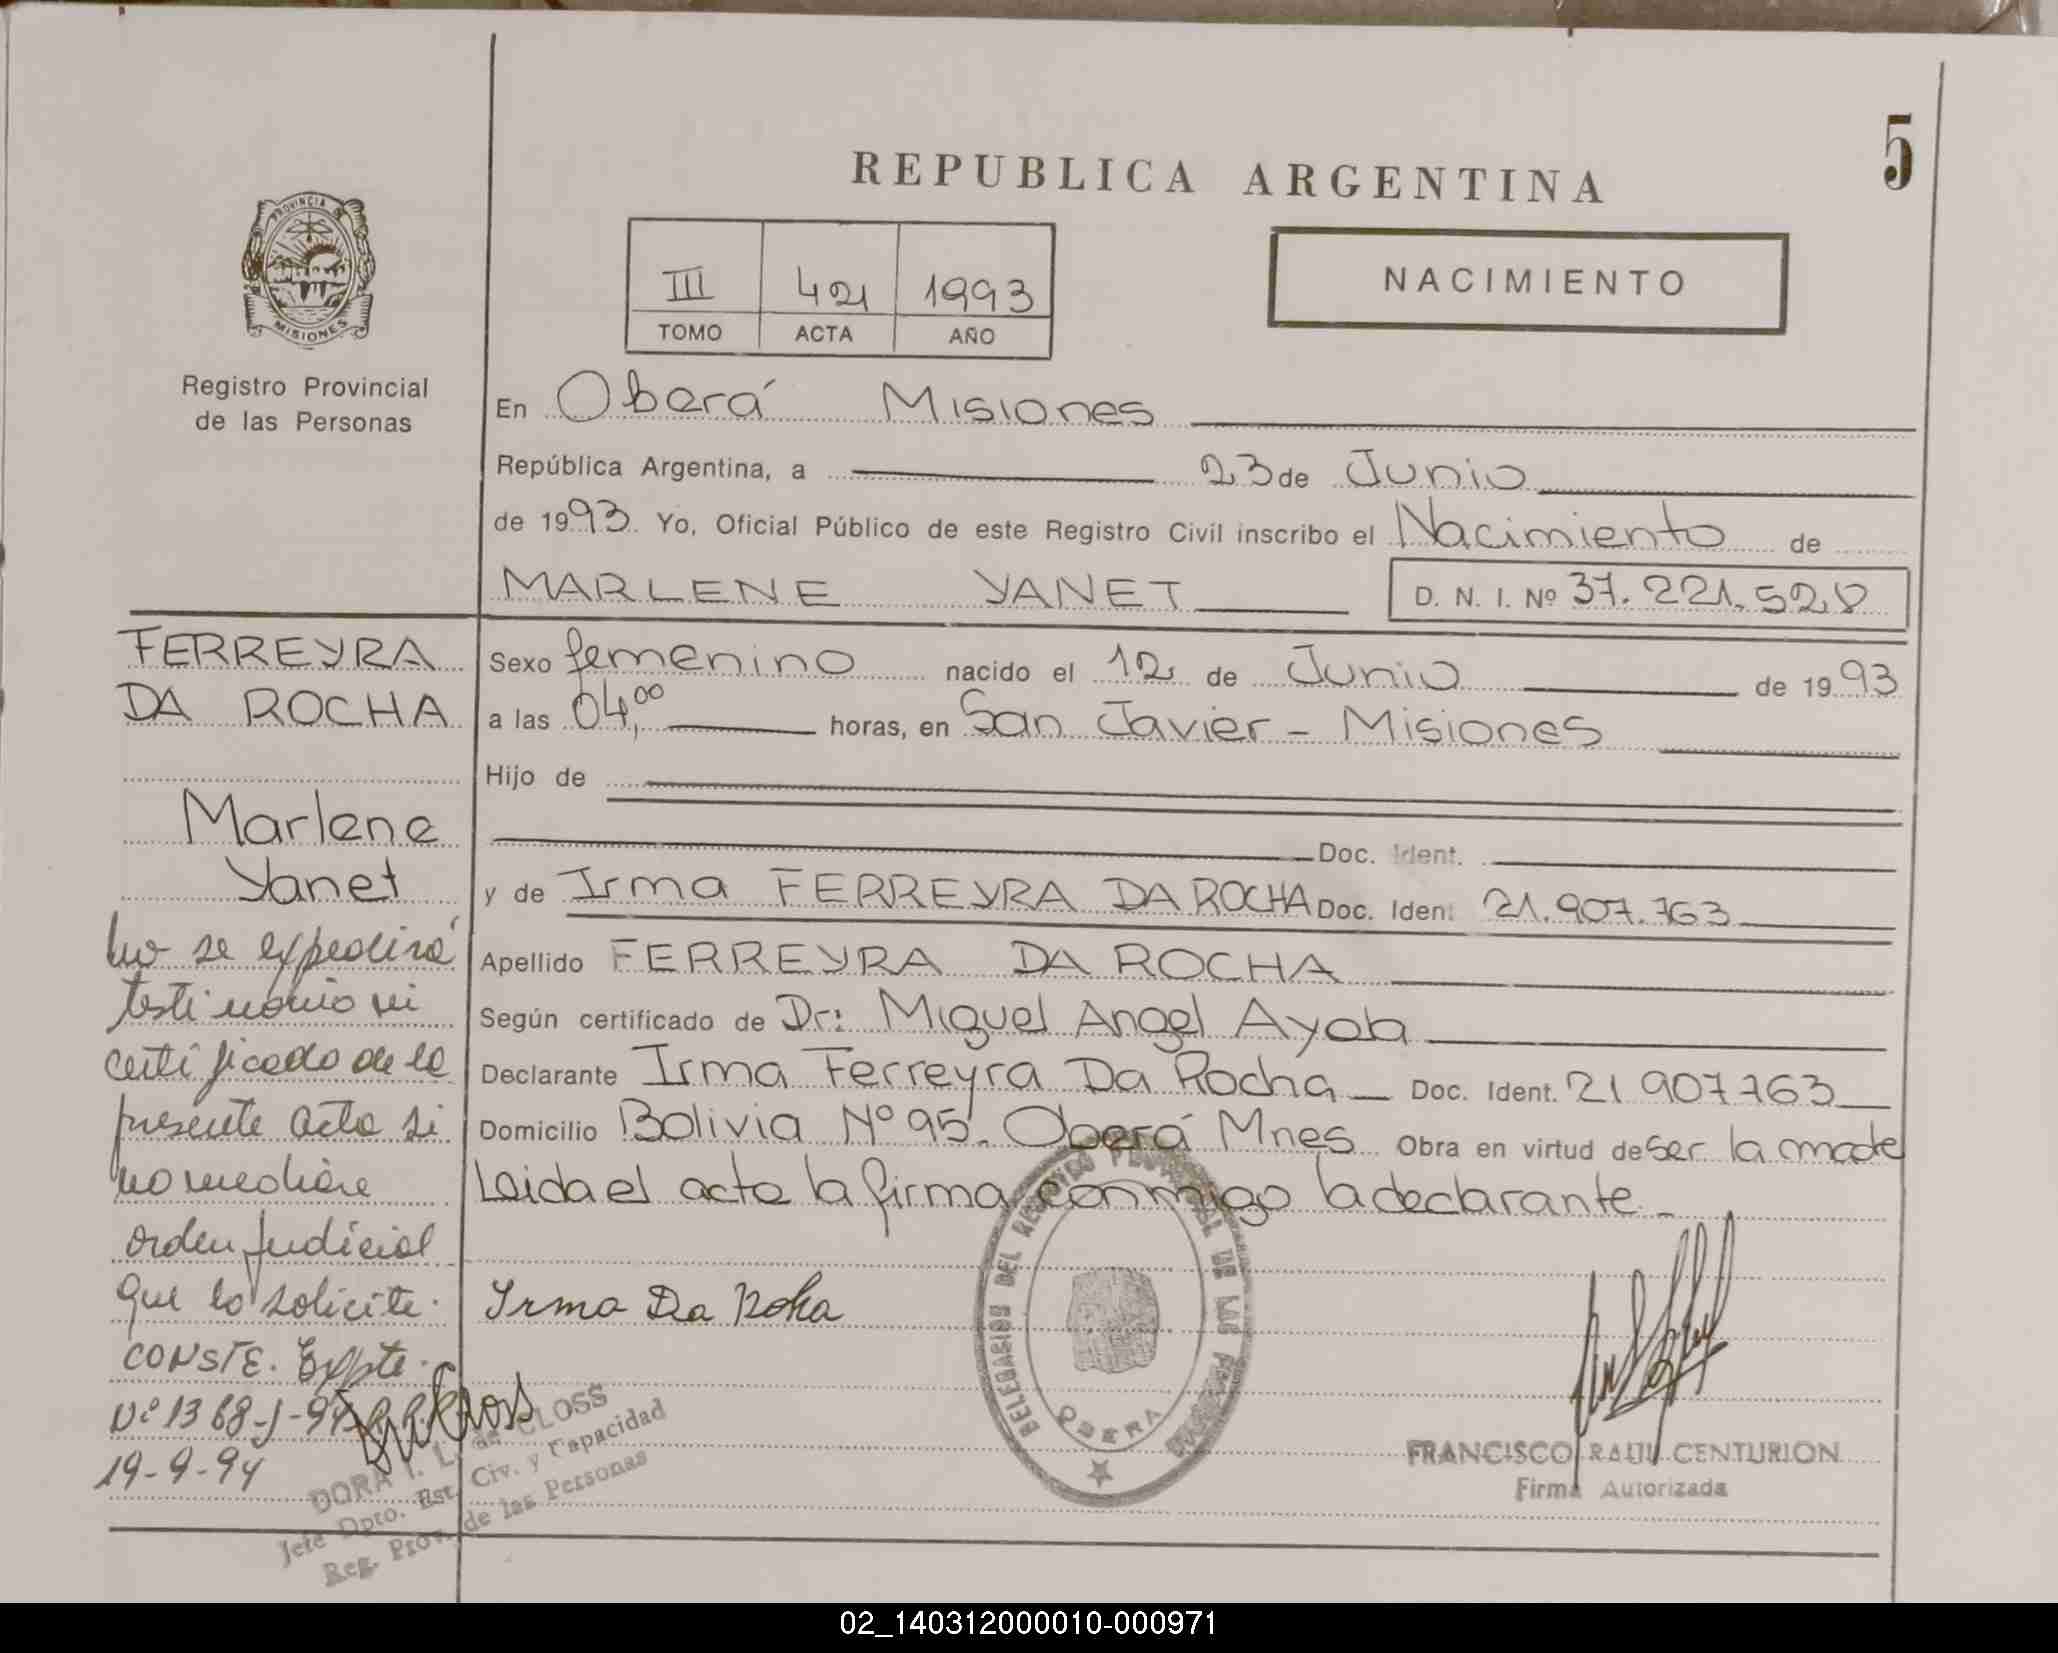 5
REPUBLICA ARGENTINA
PROVINCIA DE
MISIONES
Registro Provincial
de las Personas
III 421 1993
TOMO ACTA AÑO
NACIMIENTO
En Oberá Misiones
República Argentina, a 23 de Junio
de 1993. Yo, Oficial Público de este Registro Civil inscribo el Nacimiento de
MARLENE YANET D. N. I. Nº 37.221.528
Sexo femenino nacido el 12 de Junio de 1993
a las 04,00 horas, en San Javier - Misiones
Hijo de
Doc. Ident.
y de Irma FERREYRA DA ROCHA Doc. Iden. 21.907.763
Apellido FERREYRA DA ROCHA
Según certificado de Dr: Miguel Angel Ayala
Declarante Irma Ferreyra Da Rocha Doc. Ident. 21907763
Domicilio Bolivia Nº 95. Oberá Mnes Obra en virtud de ser la madre
Leida el acta la firma conmigo la declarante.
Irma Da Roha
FERREYRA
DA ROCHA
Marlene
Yanet
No se expedirá
testimonio ni
certificado de la
presente acta si
no mediare
orden judicial
que lo solicite.
CONSTE. Expte.
Nº 1368-J-94
19-9-94
DORA I. L. de CLOSS
Jefe Dpto. Est. Civ. y Capacidad
Reg. Prov. de las Personas
DELEGACION DEL REGISTRO PROVINCIAL DE LAS PERSONAS
OBERA
FRANCISCO RAUL CENTURION
Firma Autorizada
02_140312000010-000971